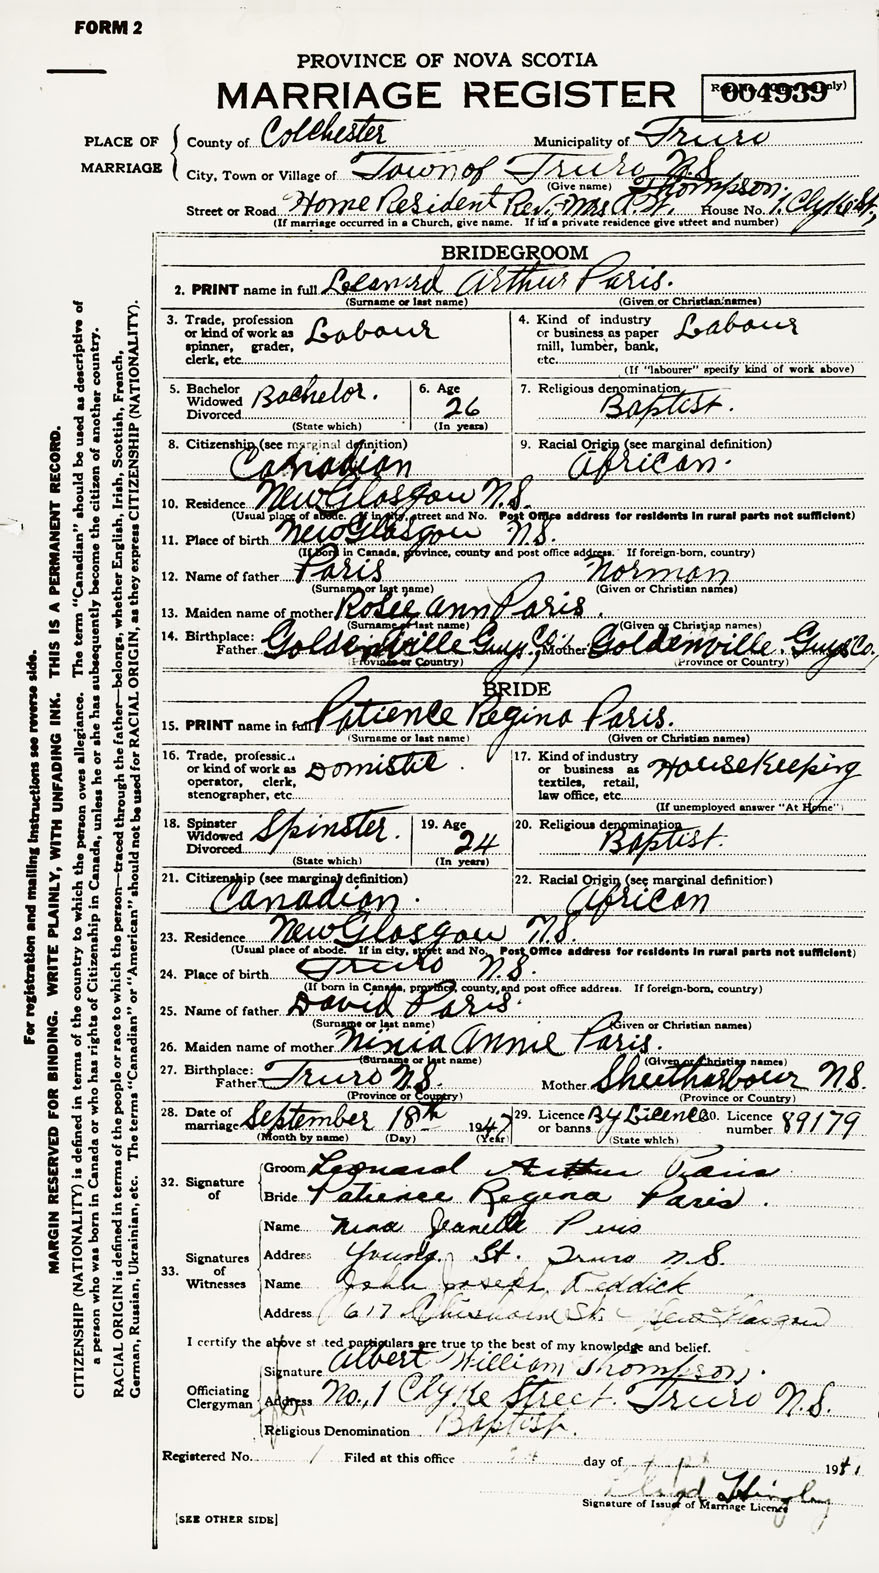 FORM 2
PROVINCE OF NOVA SCOTIA
MARRIAGE REGISTER
004939
PLACE OF MARRIAGE
County of Colchester Municipality of Truro
City, Town or Village of Town of Truro N.S.
(Give name) Thompson.
Street or Road Home Resident Rev, Mrs A.W. House No. 1. Clyke St.,
(If marriage occurred in a Church, give name. If in a private residence give street and number)
BRIDEGROOM
2. PRINT name in full Leonard Arthur Paris.
(Surname or last name) (Given or Christian names)
3. Trade, profession or kind of work as spinner, grader, clerk, etc. Labour
4. Kind of industry or business as paper mill, lumber, bank, etc. Labour
(If "labourer" specify kind of work above)
5. Bachelor Widowed Divorced Bachelor.
(State which)
6. Age 26
(In years)
7. Religious denomination Baptist.
8. Citizenship (see marginal definition) Canadian
9. Racial Origin (see marginal definition) African.
10. Residence New Glasgow N.S.
(Usual place of abode. If in city, street and No. Post Office address for residents in rural parts not sufficient)
11. Place of birth New Glasgow N.S.
(If born in Canada, province, county and post office address. If foreign-born, country)
12. Name of father Paris Norman
(Surname or last name) (Given or Christian names)
13. Maiden name of mother Rosee Ann Paris.
(Surname or last name) (Given or Christian names)
14. Birthplace: Father Goldenville Guys Co., Mother Goldenville. Guys Co.,
(Province or Country) (Province or Country)
BRIDE
15. PRINT name in full Patience Regina Paris.
(Surname or last name) (Given or Christian names)
16. Trade, profession or kind of work as operator, clerk, stenographer, etc. Domistic.
17. Kind of industry or business as textiles, retail, law office, etc. House Keeping
(If unemployed answer "At Home")
18. Spinster Widowed Divorced Spinster.
(State which)
19. Age 24
(In years)
20. Religious denomination Baptist.
21. Citizenship (see marginal definition) Canadian.
22. Racial Origin (see marginal definition) African
23. Residence New Glasgow N.S.
(Usual place of abode. If in city, street and No. Post Office address for residents in rural parts not sufficient)
24. Place of birth Truro N.S.
(If born in Canada, province, county and post office address. If foreign-born, country)
25. Name of father David Paris.
(Surname or last name) (Given or Christian names)
26. Maiden name of mother Ninia Annie Paris.
(Surname or last name) (Given or Christian names)
27. Birthplace: Father Truro N.S. Mother Sheetharbour N.S.
(Province or Country) (Province or Country)
28. Date of marriage September 18th 1947
(Month by name) (Day) (Year)
29. Licence or banns By Licence
(State which)
30. Licence number 89179
32. Signature of
Groom Leonard Arthur Paris
Bride Patience Regina Paris
33. Signatures of Witnesses
Name Nina Jeanette Paris
Address Young St. Truro N.S.
Name John Joseph Reddick
Address 617 St. New Glasgow
I certify the above stated particulars are true to the best of my knowledge and belief.
Officiating Clergyman
Signature Albert William Thompson.
Address No., 1 Clyke Street. Truro N.S.
Religious Denomination Baptist.
Registered No. 1 Filed at this office day of 19
Signature of Issuer of Marriage Licence
[SEE OTHER SIDE]
For registration and mailing instructions see reverse side.
MARGIN RESERVED FOR BINDING. WRITE PLAINLY, WITH UNFADING INK. THIS IS A PERMANENT RECORD.
CITIZENSHIP (NATIONALITY) is defined in terms of the country to which the person owes allegiance. The term "Canadian" should be used as descriptive of
a person who was born in Canada or who has rights of Citizenship in Canada, unless he or she has subsequently become the citizen of another country.
RACIAL ORIGIN is defined in terms of the people or race to which the person—traced through the father—belongs, whether English, Irish, Scottish, French,
German, Russian, Ukrainian, etc. The terms "Canadian" or "American" should not be used for RACIAL ORIGIN, as they express CITIZENSHIP (NATIONALITY).